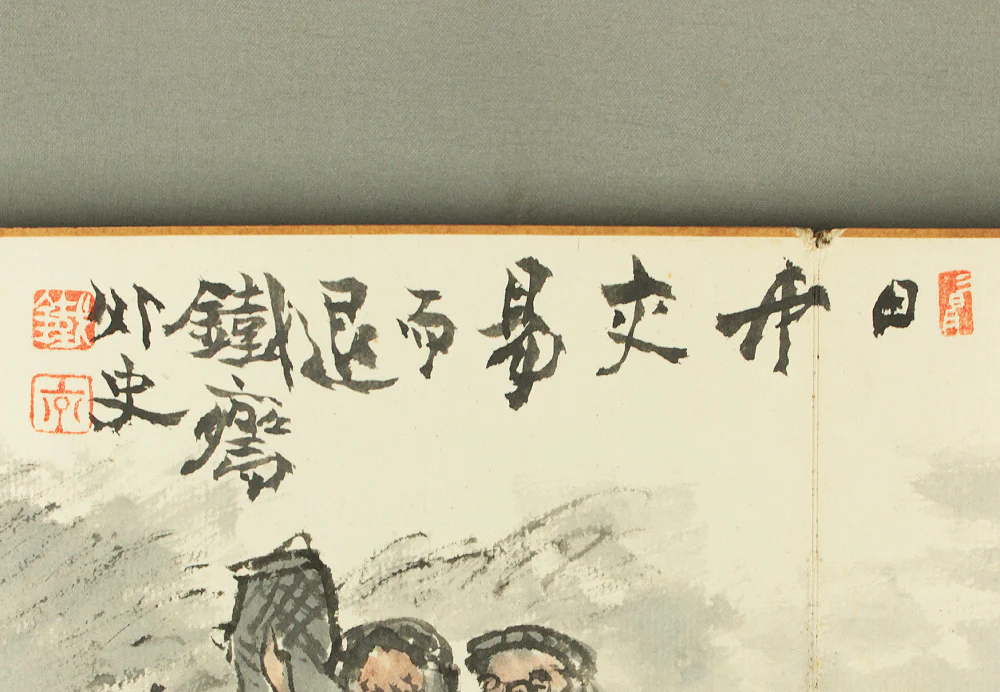 日中交易而退
鐵齋
外史
鐵